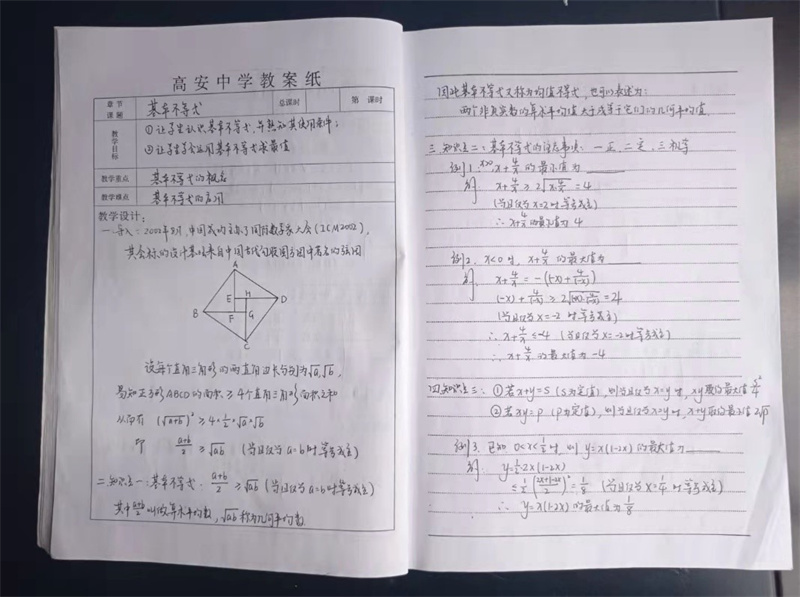 高安中学教案纸
章节
课题
基本不等式
总课时
第 课时
教学目标
①让学生认识基本不等式,并熟知其使用条件;
②让学生学会运用基本不等式求最值
教学重点
基本不等式的概念
教学难点
基本不等式的应用
教学设计:
一、导入:2002年8月,中国成功主办了国际数学家大会(ICM2002),
其会标的设计基础来自中国古代勾股圆方图中著名的弦图
A
E H D
B F G
C
设每个直角三角形的两直角边长分别为√a,√b,
易知正方形ABCD的面积≥4个直角三角形面积之和
从而有 (√(a+b))²≥4·1/2·√a·√b
即 (a+b)/2≥√(ab) (当且仅当a=b时等号成立)
二、知识点一:基本不等式:(a+b)/2≥√(ab) (当且仅当a=b时等号成立)
其中(a+b)/2叫做算术平均数,√(ab)称为几何平均数.
因此基本不等式又称为均值不等式,也可以表述为:
两个非负实数的算术平均值大于或等于它们的几何平均值.
三、知识点二:基本不等式的注意事项:一正、二定、三相等
例1. x>0, x+4/x的最小值为
解 x+4/x≥2√(x·4/x)=4
(当且仅当x=2时等号成立)
∴x+4/x的最小值为4
例2. x<0时, x+4/x的最大值为
解 x+4/x=-((-x)+4/(-x))
(-x)+4/(-x)≥2√((-x)·4/(-x))=4
(当且仅当x=-2时等号成立)
∴x+4/x≤-4 (当且仅当x=-2时等号成立)
∴x+4/x的最大值为-4
四、知识点三:①若x+y=S (S为定值),则当且仅当x=y时,xy取得最大值S²/4
②若xy=P (P为定值),则当且仅当x=y时,x+y取得最小值2√P
例3. 已知0<x<1/2时,则y=x(1-2x)的最大值为
解 y=1/2·2x(1-2x)
≤1/2((2x+1-2x)/2)²=1/8 (当且仅当x=1/4时等号成立)
∴y=x(1-2x)的最大值为1/8